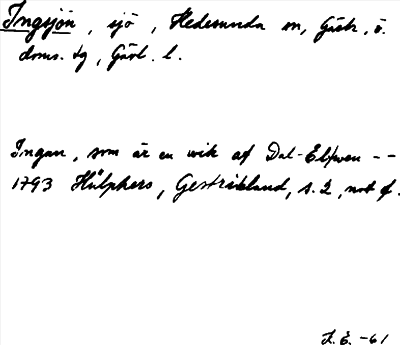 Ingsjön, sjö, Hedesunda sn, Gästr. ö.
doms. dg, Gävl. l.
Ingan, som är en wik af Dal-Elfwen --
1793 Hülphers, Gestrikland, s. 2, not f.
J. E. -61